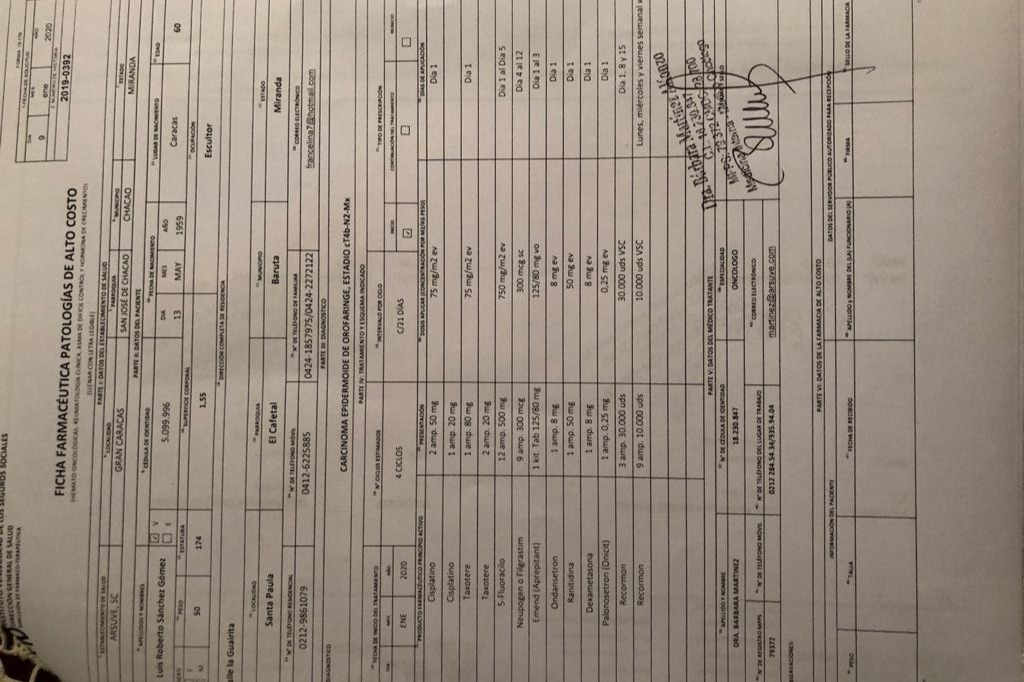 DE LOS SEGUROS SOCIALES
GENERAL DE SALUD
FARMACO-TERAPEUTICA
FICHA FARMACÉUTICA PATOLOGÍAS DE ALTO COSTO
(LLENAR CON LETRA LEGIBLE)
DIA MES AÑO
9 ene 2020
2019-0392
PARTE I: DATOS DEL ESTABLECIMIENTO DE SALUD
ESTABLECIMIENTO DE SALUD LOCALIDAD PARROQUIA MUNICIPIO ESTADO
ARSUVE, SC GRAN CARACAS SAN JOSE DE CHACAO CHACAO MIRANDA
PARTE II: DATOS DEL PACIENTE
APELLIDOS Y NOMBRES CÉDULA DE IDENTIDAD FECHA DE NACIMIENTO LUGAR DE NACIMIENTO EDAD
Luis Roberto Sánchez Gómez V E 5.099.996 DIA MES AÑO Caracas 60
13 MAY 1959
PESO ESTATURA SUPERFICIE CORPORAL OCUPACIÓN
50 174 1,55 Escultor
DIRECCIÓN COMPLETA DE RESIDENCIA
alle la Guairita
LOCALIDAD PARROQUIA MUNICIPIO ESTADO
Santa Paula El Cafetal Baruta Miranda
N° DE TELÉFONO RESIDENCIAL N° DE TELÉFONO MÓVIL N° DE TELÉFONO DE FAMILIAR CORREO ELECTRÓNICO
0212-9861079 0412-6225885 0424-1857975/0424-2272122 francelina7@hotmail.com
PARTE III: DIAGNÓSTICO
DIAGNOSTICO
CARCINOMA EPIDERMOIDE DE OROFARINGE, ESTADIO cT4b-N2-Mx
PARTE IV: TRATAMIENTO Y ESQUEMA INDICADO
FECHA DE INICIO DEL TRATAMIENTO N° CICLOS ESTIMADOS INTERVALO POR CICLO TIPO DE PRESCRIPCIÓN
DIA MES AÑO INICIO CONTINUACIÓN DEL TRATAMIENTO REINICIO
ENE 2020 4 CICLOS C/21 DÍAS
PRODUCTO FARMACÉUTICO/PRINCIPIO ACTIVO PRESENTACIÓN DOSIS APLICAR (CONCENTRACIÓN POR M2/KG PESO) DIAS DE APLICACIÓN
Cisplatino 2 amp. 50 mg 75 mg/m2 ev Día 1
Cisplatino 1 amp. 20 mg
Taxotere 1 amp. 80 mg 75 mg/m2 ev Día 1
Taxotere 2 amp. 20 mg
5-Fluoracilo 12 amp. 500 mg 750 mg/m2 ev Día 1 al Día 5
Neupogen o Filgrastim 9 amp. 300 mcg 300 mcg sc Día 4 al 12
Emend (Aprepitant) 1 kit. Tab 125/80 mg 125/80 mg vo Día 1 al 3
Ondansetron 1 amp. 8 mg 8 mg ev Día 1
Ranitidina 1 amp. 50 mg 50 mg ev Día 1
Dexametasona 1 amp. 8 mg 8 mg ev Día 1
Palonosetron (Onicit) 1 amp. 0,25 mg 0,25 mg ev Día 1
Recormon 3 amp. 30.000 uds 30.000 uds VSC Día 1, 8 y 15
Recormon 9 amp. 10.000 uds 10.000 uds VSC Lunes, miércoles y viernes semanal x
PARTE V: DATOS DEL MÉDICO TRATANTE
APELLIDO Y NOMBRE N° DE CÉDULA DE IDENTIDAD ESPECIALIDAD
DRA. BARBARA MARTINEZ 18.230.847 ONCOLOGO
N° DE REGISTRO MPPS N° DE TELÉFONO MÓVIL N° DE TELÉFONO DEL LUGAR DE TRABAJO CORREO ELECTRÓNICO
79372 0212 284.54.34/935.94.04 martinez@arsuve.com
Dra. Bárbara Martínez
OBSERVACIONES
PARTE VI: DATOS DE LA FARMACIA DE ALTO COSTO
INFORMACIÓN DEL PACIENTE DATOS DEL SERVIDOR PÚBLICO AUTORIZADO PARA RECEPCIÓN
PESO TALLA FECHA DE RECIBIDO APELLIDO Y NOMBRE DEL (LA) FUNCIONARIO (A) FIRMA SELLO DE LA FARMACIA